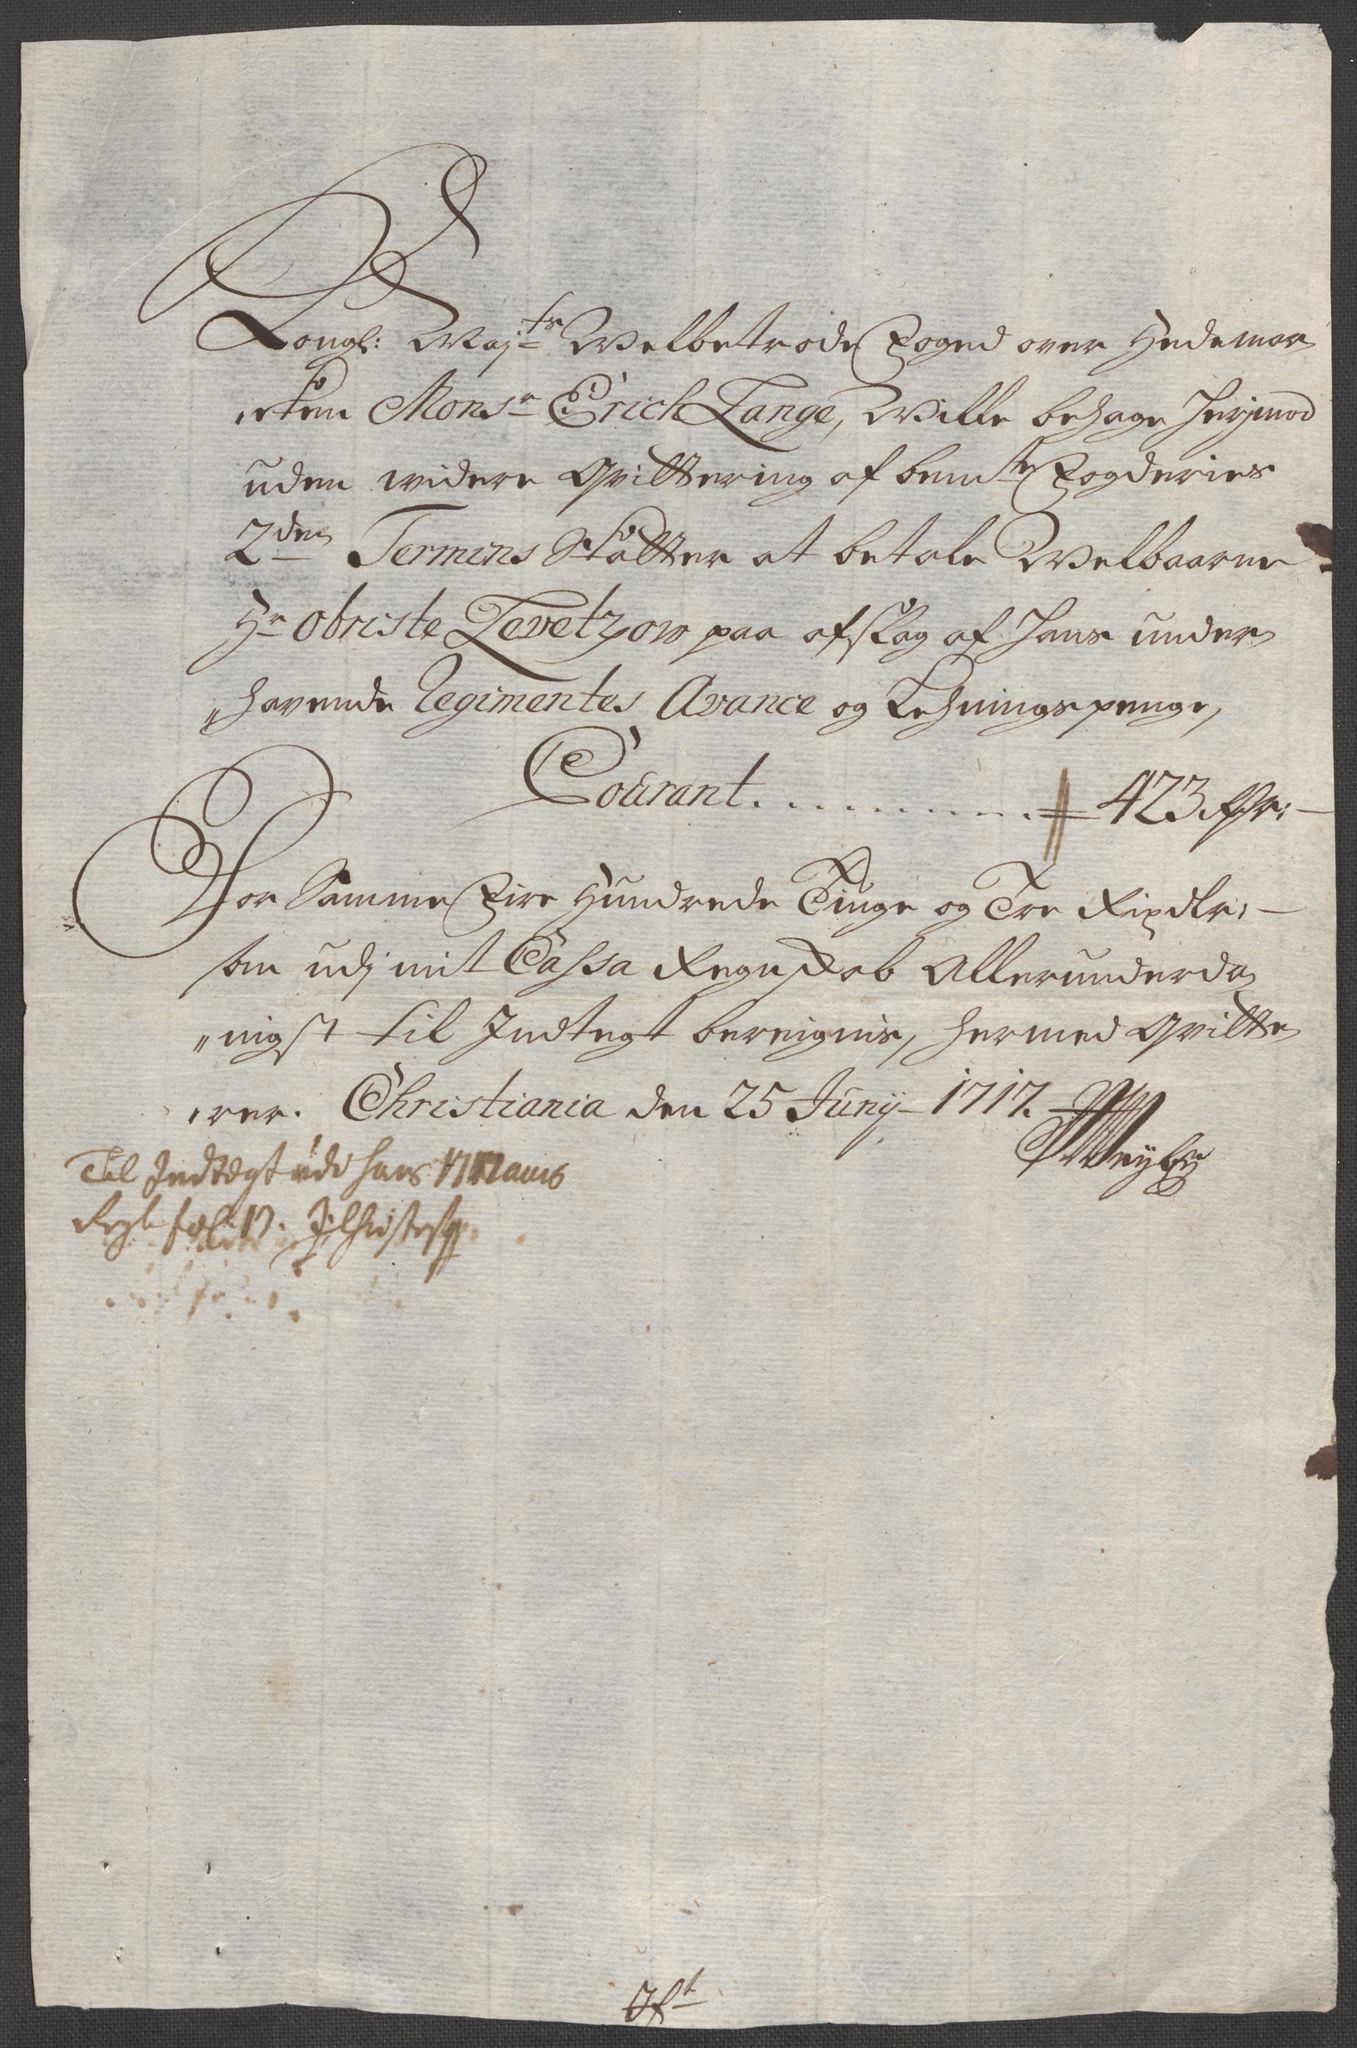 Kongl: Maj:ts Welbetrode Foged over Hedemar
"cken Monsr Erich Lange, Wille behage herjmod
uden widere Qvittering af bemte Fogderies
2den Termins Skatter at betale Welbaarne
Hr Obriste Levetzow paa afslag af hans under
"havende Regimentes Avance og Lehningspenge,
Courant ......... 423 Rdr:
For Samme Fire Hundrede Tiuge og Tre Rixdlr:
som udj mit Cassa Regnskab Allerunderda
"nigst til Indtegt bereignis, hermed Qvitte
"rer. Christiania den 25 Junij 1717.
Til Indtegt udi hans 1717 aars
Regls fol: 17.